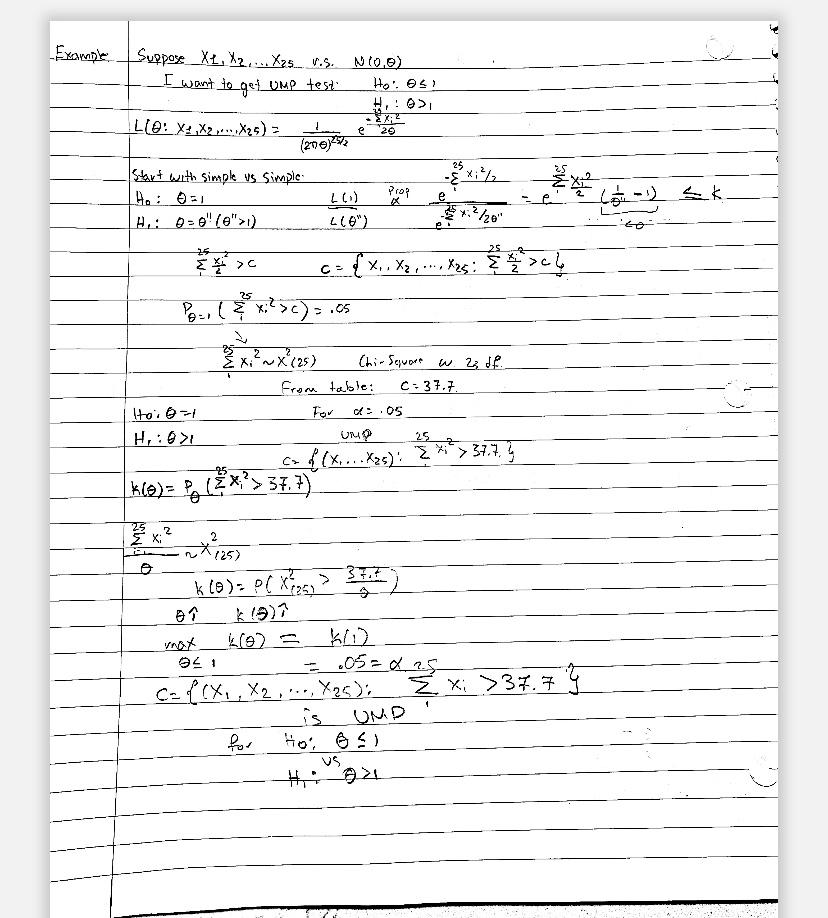 Example Suppose X1, X2, ... X25 r.s. N(0,θ)
I want to get UMP test: H0: θ≤1
H1: θ>1
L(θ: X1, X2, ..., X25) = 1/(2πθ)^25/2 e^(-Σ_1^25 Xi²/2θ)
Start with simple vs simple:
H0: θ=1 L(1)/L(θ") prop α e^(-Σ_1^25 Xi²/2) / e^(-Σ_1^25 Xi²/2θ") = e^(Σ_1^25 Xi²/2 (1/θ" -1)) ≤ k
H1: θ=θ" (θ">1) <0
Σ_1^25 Xi²/2 >c C= { X1, X2, ..., X25: Σ_1^25 Xi²/2 >c }
Pθ=1 ( Σ_1^25 Xi² >c) = .05
↓
Σ_1^25 Xi² ~ X²(25) Chi-Square w 25 df.
From table: C=37.7
H0: θ=1 For α= .05
H1: θ>1 UMP
C= { (X1, ... X25): Σ_1^25 Xi² > 37.7 }
K(θ)= Pθ ( Σ_1^25 Xi² > 37.7)
Σ_1^25 Xi² / θ ~ X²(25)
K(θ)= P( X²(25) > 37.7/θ )
θ↑ K(θ)↑
max θ≤1 K(θ) = K(1)
= .05 = α
C= { (X1, X2, ..., X25): Σ_1^25 Xi >37.7 }
is UMP
for H0: θ≤1
vs
H1: θ>1